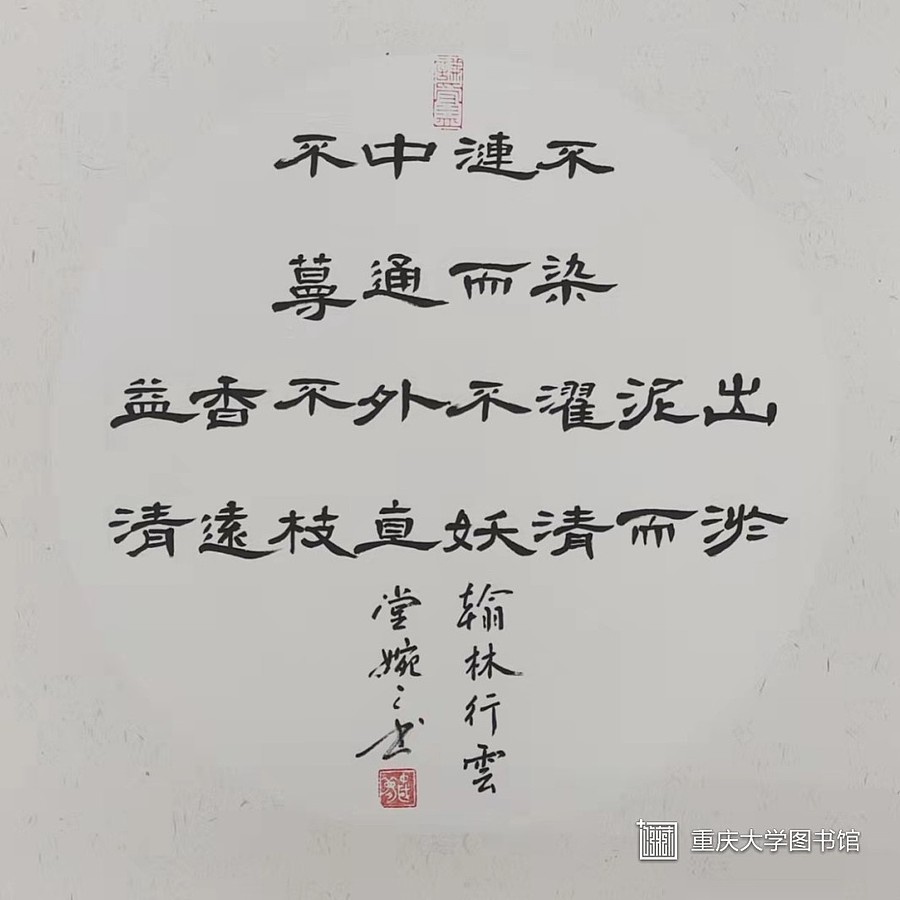 出淤
泥而
不染濯清
漣而不妖
中通外直
不蔓不枝
香遠
益清
翰林行雲
堂婉之书
重庆大学图书馆